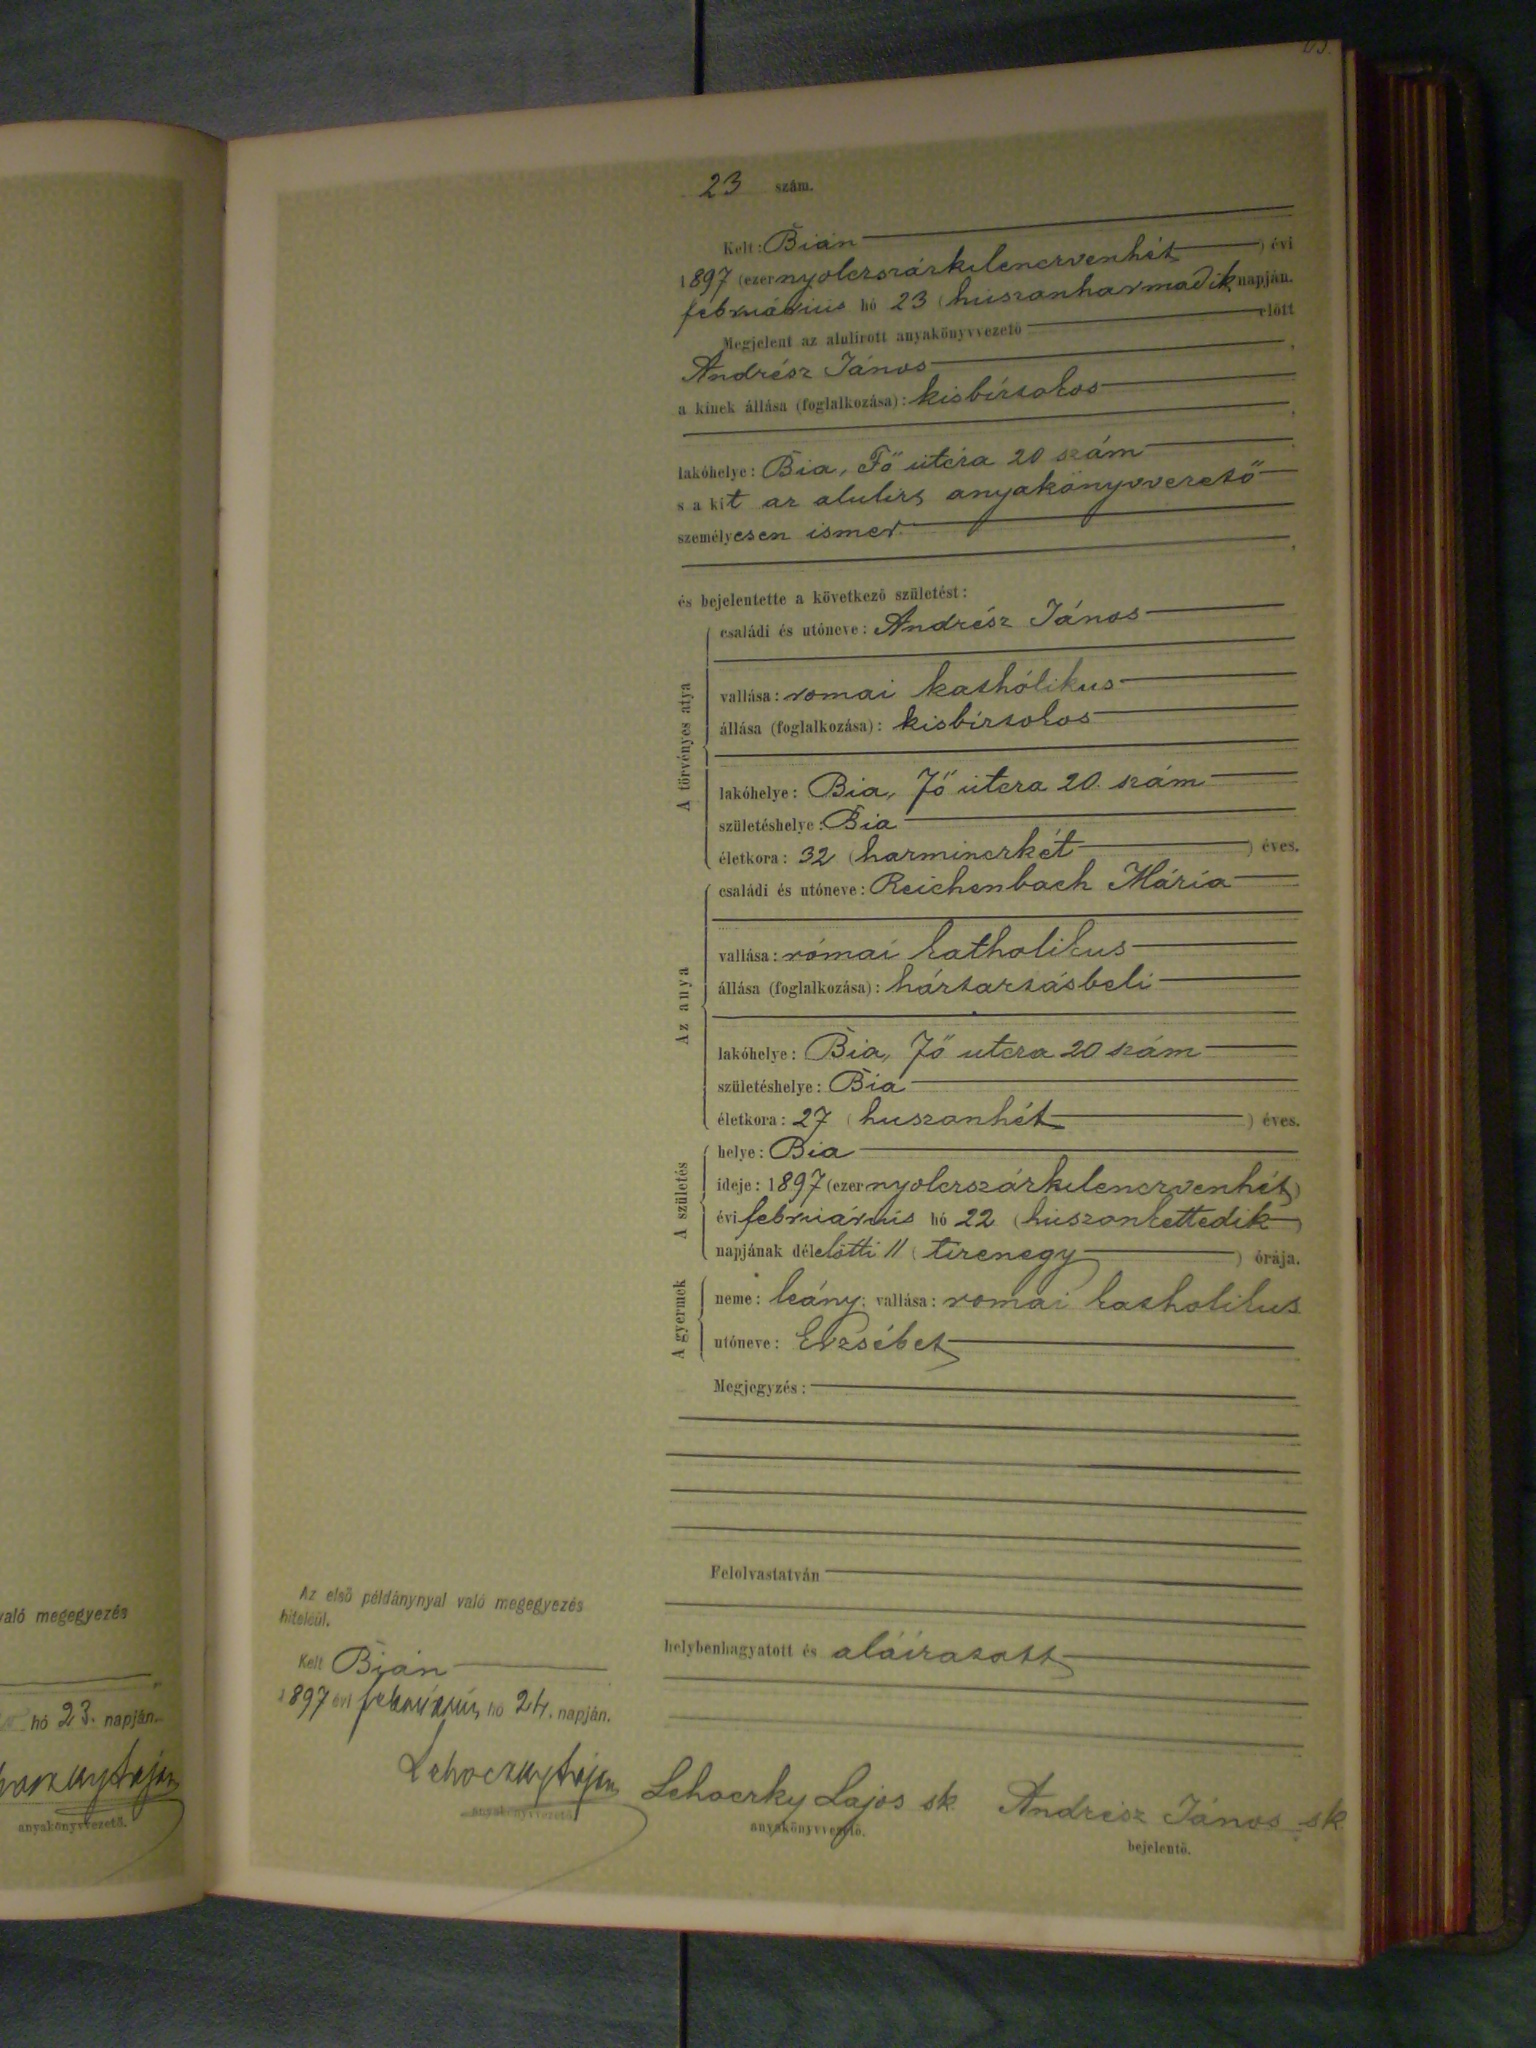 23 szám.
Kelt: Bián
1897 (ezernyolczszázkilenczvenhét) évi
februárius hó 23 (huszonharmadik napján.
Megjelent az alulirott anyakönyvvezető előtt
Andrész János,
a kinek állása (foglalkozása): kisbirtokos
lakóhelye: Bia, Fő utcza 20 szám
s a kit az alulirt anyakönyvvezető
személyesen ismer
és bejelentette a következő születést:
A törvényes atya
családi és utóneve: Andrész János
vallása: romai kathólikus
állása (foglalkozása): kisbirtokos
lakóhelye: Bia, Fő utcza 20. szám
születéshelye: Bia
életkora: 32 (harminczkét) éves.
Az anya
családi és utóneve: Reichenbach Mária
vallása: római katholikus
állása (foglalkozása): háztartásbeli
lakóhelye: Bia, Fő utcza 20 szám
születéshelye: Bia
életkora: 27 (huszonhét) éves.
A születés
helye: Bia
ideje: 1897 (ezernyolczszázkilenczvenhét)
évi februárius hó 22 (huszonkettedik)
napjának délelőtti 11 (tizenegy) órája.
A gyermek
neme: leány; vallása: romai katholikus
utóneve: Erzsébet
Megjegyzés:
Felolvastatván
helybenhagyatott és aláiratott
Lehoczky Lajos sk.
anyakönyvvezető.
Andrész János sk
bejelentő.
Az első példánynyal való megegyezés
hiteléül.
Kelt Bián
1897 évi februárius hó 24. napján.
Lehoczky Lajos
anyakönyvvezető.
való megegyezés
hó 23. napján.
anyakönyvvezető.